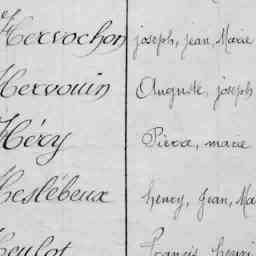 Hervochon joseph, jean, Marie
Hervouin Auguste, joseph
Héry Pierre, marie
Heslébeux henry, Jean, Ma
Heulot francis, henri